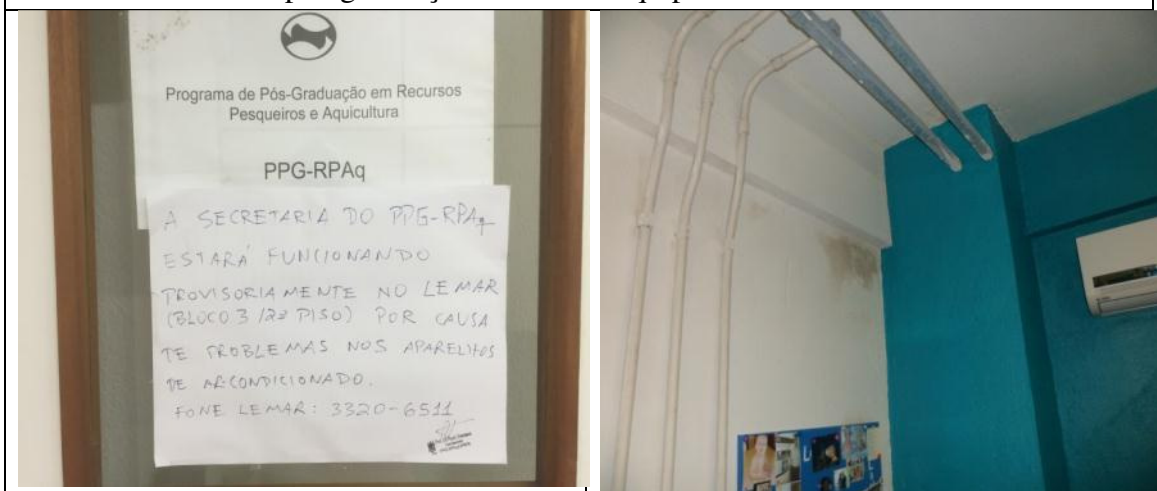 Programa de Pós-Graduação em Recursos
Pesqueiros e Aquicultura
PPG-RPAq
A SECRETARIA DO PPG-RPAq
ESTARÁ FUNCIONANDO
PROVISORIAMENTE NO LEMAR
(BLOCO 3 / 2º PISO) POR CAUSA
DE PROBLEMAS NOS APARELHOS
DE AR-CONDICIONADO.
FONE LEMAR: 3320-6511